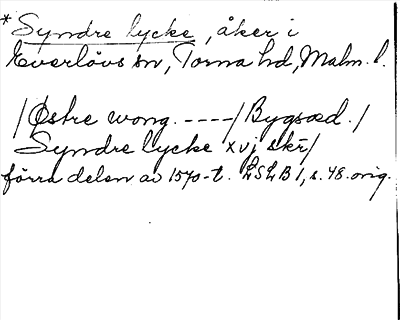 *Syndre lycke, åker i
Everlövs sn, Torna hd, Malm. l.
/Østre wong. ----/ Bygsæd. /
Syndre lycke xvj skr̄/
förra delen av 1570-t. LSLB 1, s. 48. orig.